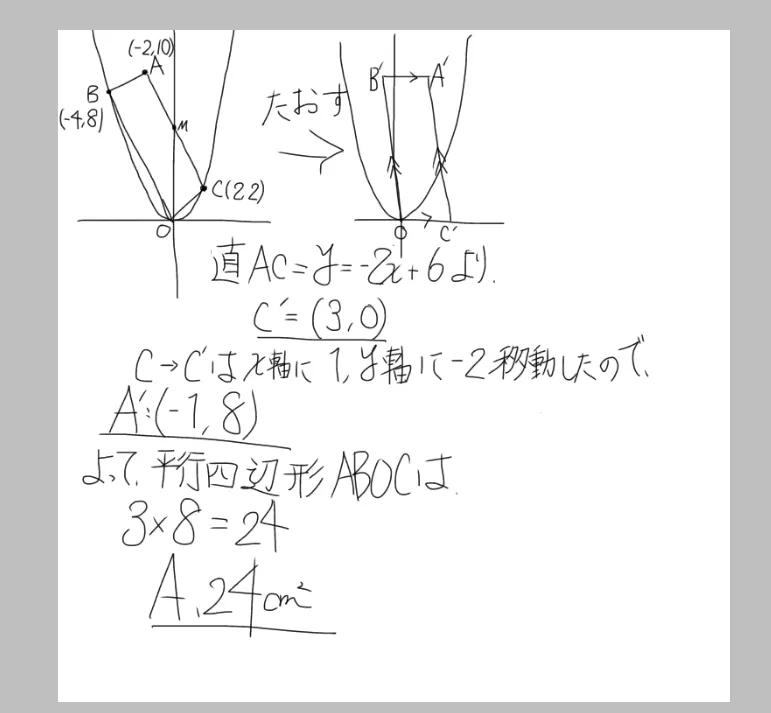 (-2,10)
A
B
(-4,8)
M
C(2,2)
O
たおす
B' A'
O C'
直AC=y=-2x+6より.
C'=(3,0)
C→C'はx軸に1,y軸に-2移動したので、
A':(-1,8)
よって、平行四辺形ABOCは.
3×8=24
A、24cm²